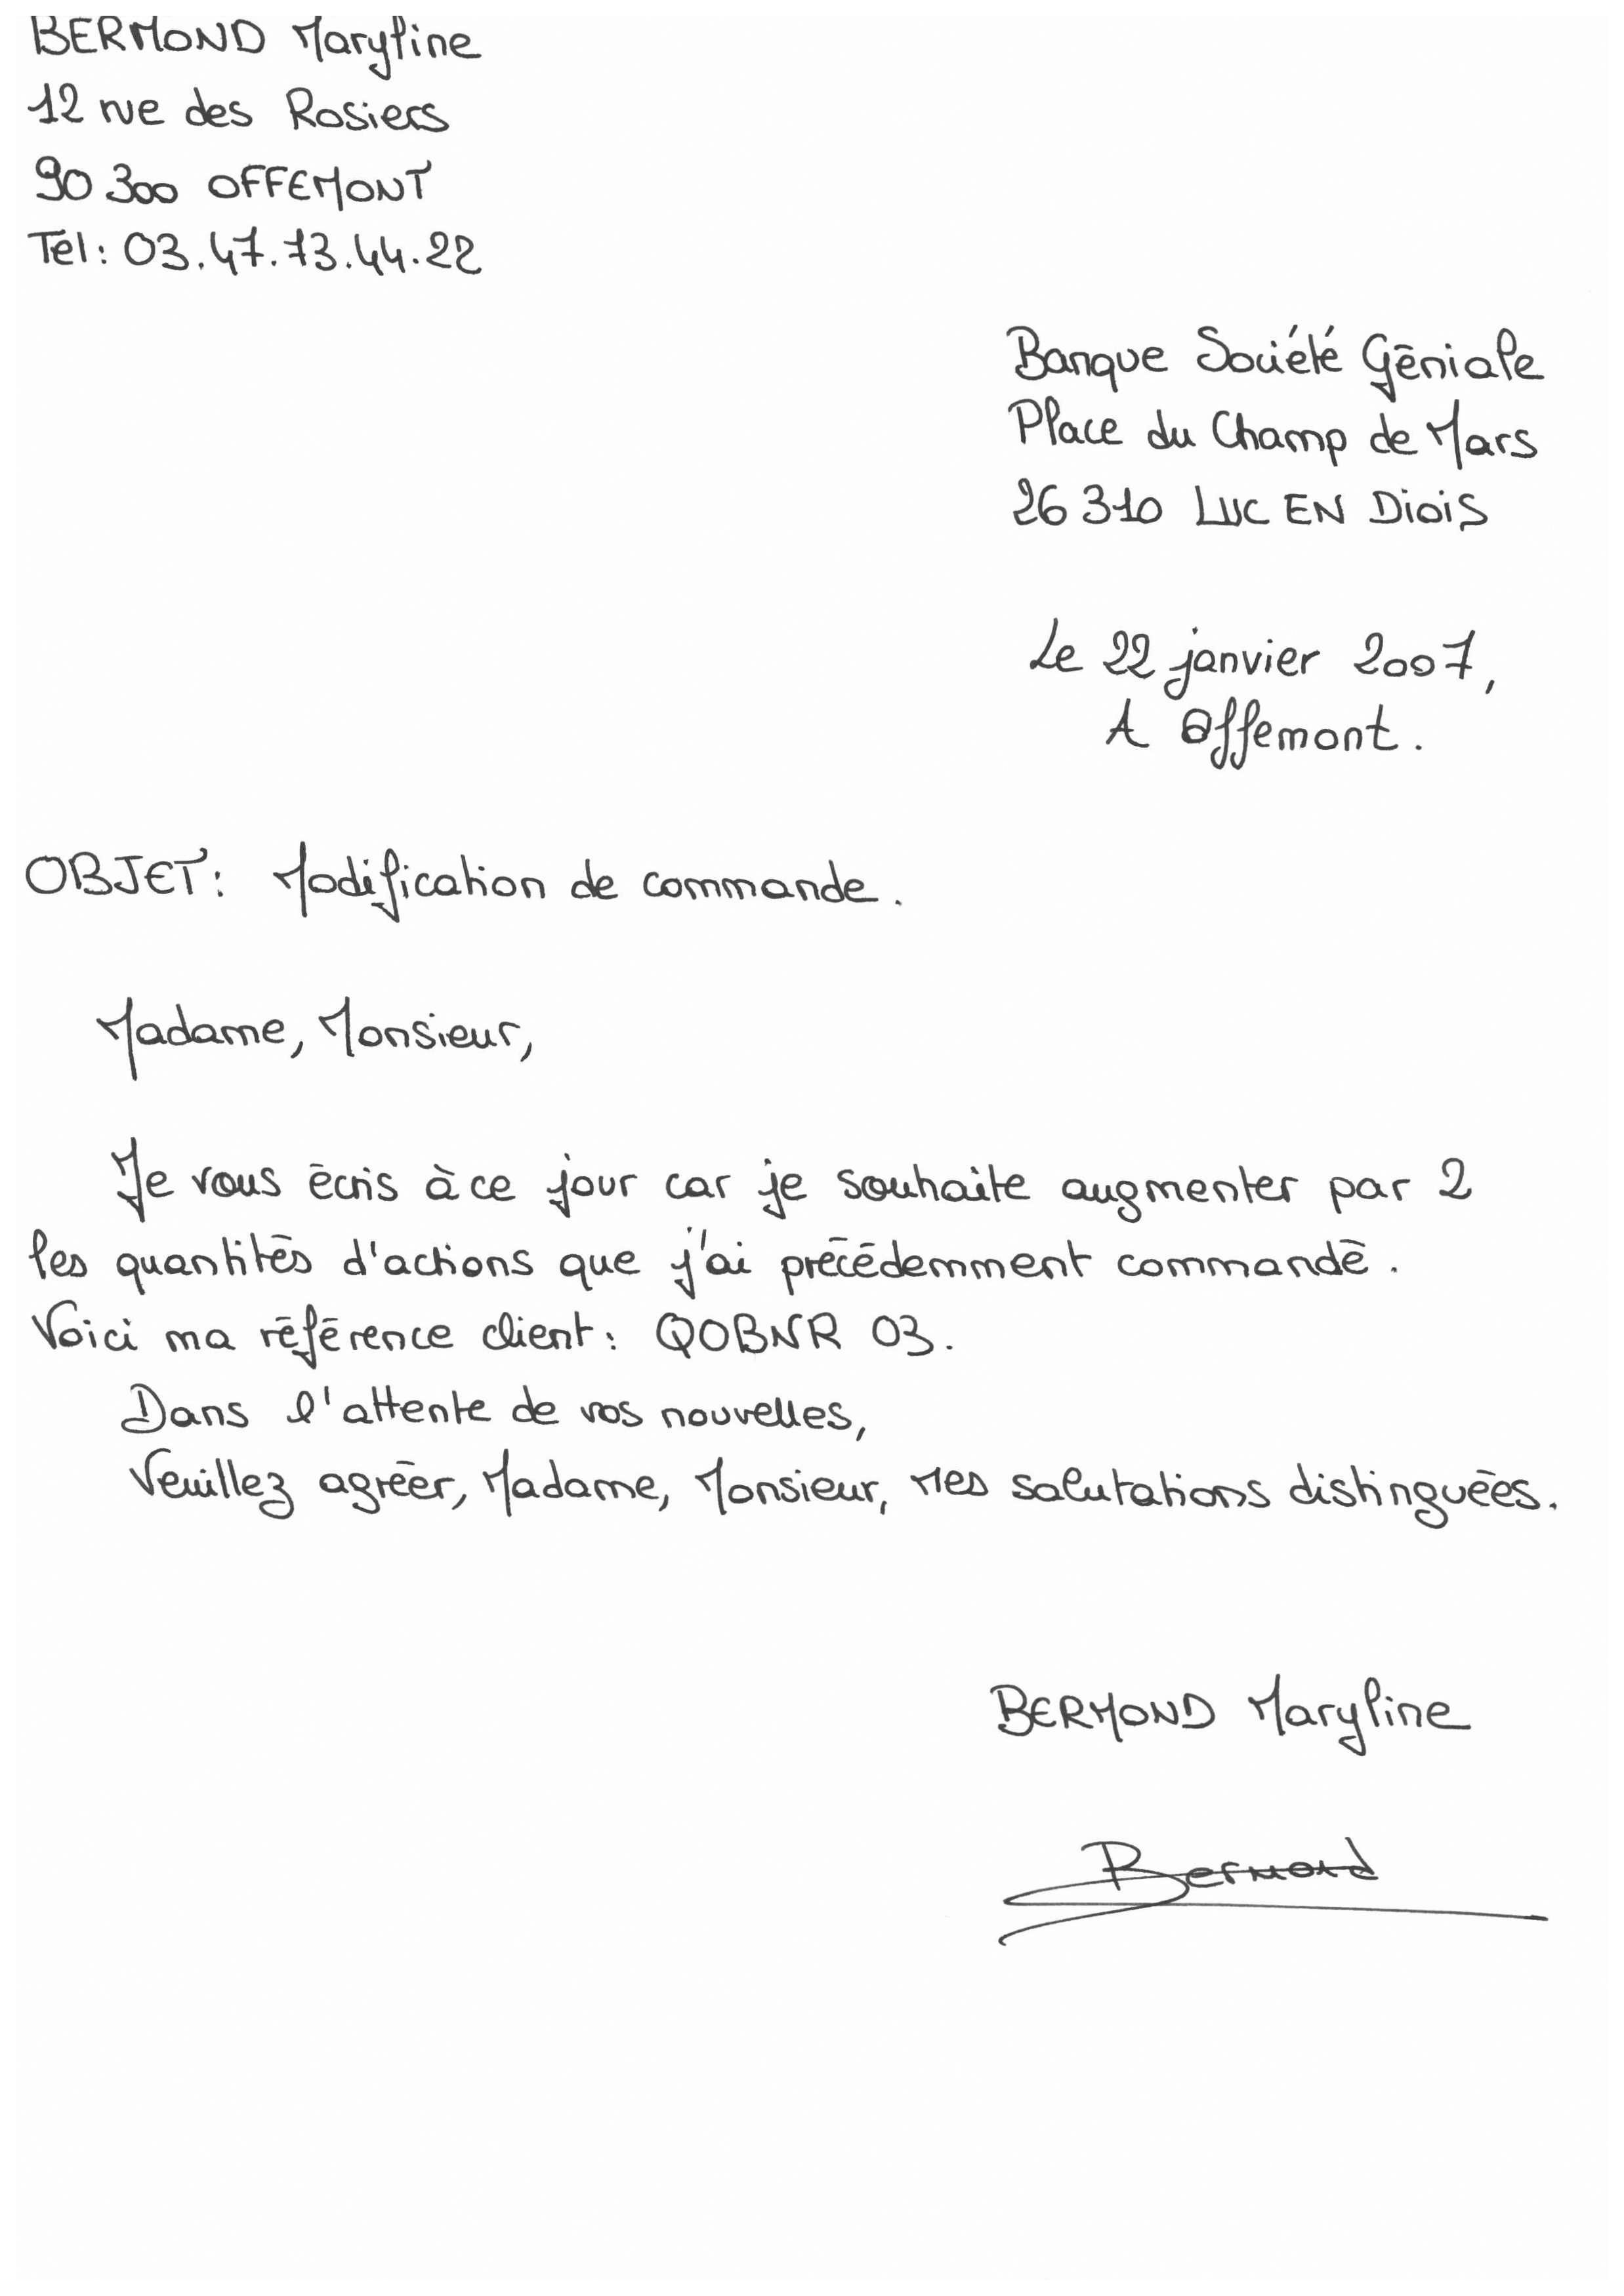 BERMOND Maryline
12 rue des Rosiers
90 300 OFFEMONT
Tel: 03.47.73.44.22
Banque Société Géniale
Place du Champ de Mars
26 310 LUC EN DIOIS
Le 22 janvier 2007,
A Offemont.
OBJET: Modification de commande.
Madame, Monsieur,
Je vous écris à ce jour car je souhaite augmenter par 2
les quantités d'actions que j'ai précédemment commandé.
Voici ma référence client: QOBNR 03.
Dans l'attente de vos nouvelles,
Veuillez agréer, Madame, Monsieur, mes salutations distinguées.
BERMOND Maryline
Bermond